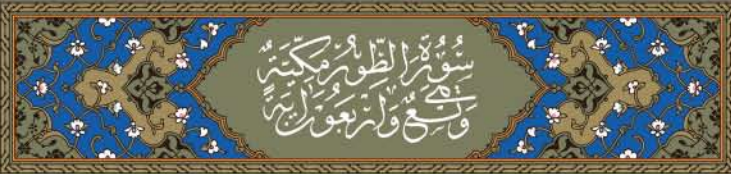 سُوْرَةُ الطُّوْرِ مَكِّيَّةٌ
وَهِيَ تِسْعٌ وَأَرْبَعُوْنَ اٰيَةً